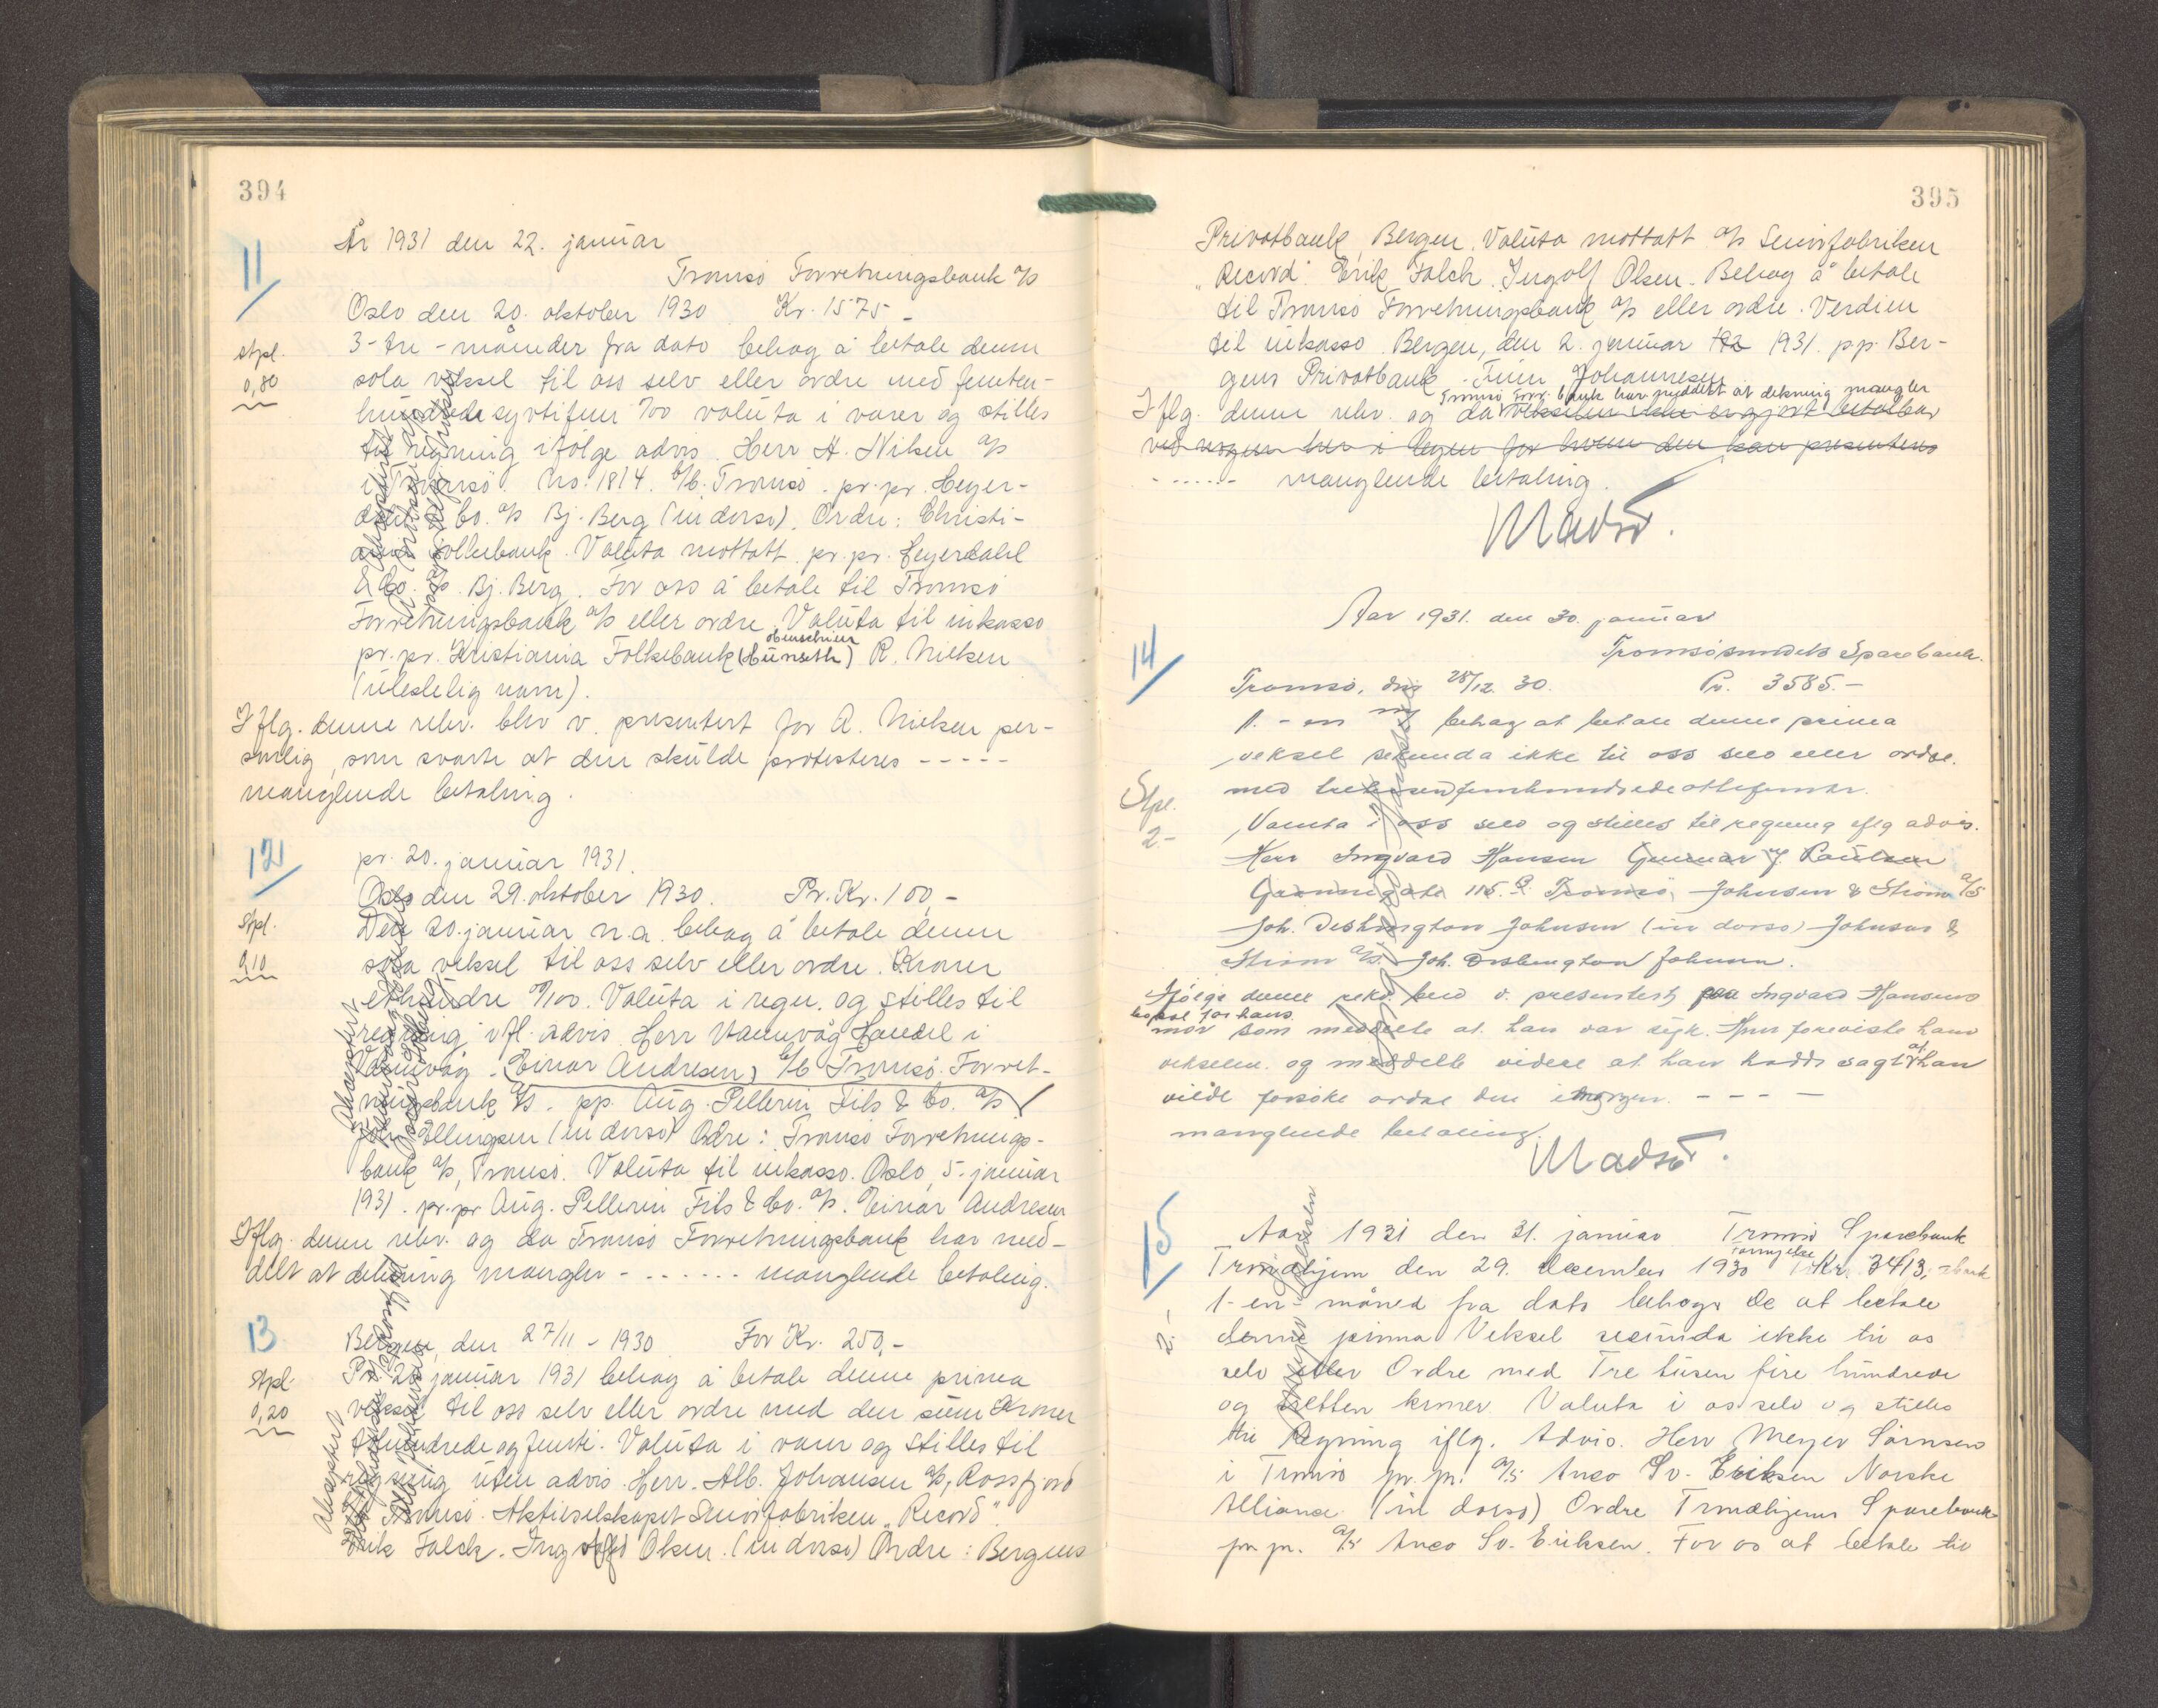 394
År 1931 den 22. januar
11
Tromsø Forretningsbank a/s
Oslo den 20. oktober 1930 Kr. 1575 -
stpl. 0,80
3 - tre - måneder fra dato behag å betale denne
sola veksel til oss selv eller ordre med femten-
hundrede syvtifem °/100 valuta i varer og stilles
til regning ifølge advis. Herr A. Nilsen a/s
i Tromsø. No. 1814. b/b. Tromsø. pr. pr. Heyer-
dahl & Co. a/s Bj. Berg (in dorso). Ordre: Christi-
ania Folkebank. Valuta mottatt pr. pr. Heyerdahl
& Co. a/s Bj. Berg. For oss å betale til Tromsø
Forretningsbank a/s eller ordre. Valuta til inkasso
pr. pr. Kristiania Folkebank (Hünseth) R. Nielsen
(uleselig navn).
I flg. denne rekv. blev v. presentert for A. Nielsen per-
sonlig, som svarte at den skulde protesteres - - - - -
manglende betaling.
12
pr. 20. januar 1931.
Oslo den 29. oktober 1930. Pr. Kr. 100,-
stpl. 0,10
Den 20. januar n.a. behag å betale denne
sola veksel til oss selv eller ordre. Kroner
ethundre °/100. Valuta i regn. og stilles til
regning i fl. advis Herr Vannvåg Handel i
Vannvåg. (Einar Andresen) b/b Tromsø Forret-
ningsbank a/s. pp. Aug. Pellerin Fils & Co. a/s
Ellingsen (in dorso) Ordre: Tromsø Forretnings-
bank a/s, Tromsø. Valuta til inkasso. Oslo, 5. januar
1931. pr. pr Aug. Pellerin Fils & Co. a/s. Einar Andresen
I flg. denne rekv. og da Tromsø Forretningsbank har med-
delt at dekning mangler - . . . . . . manglende betaling.
13
Bergen, den 27/11 - 1930 For Kr. 250,-
stpl. 0,20
Pr. 20 januar 1931 behag å betale denne prima
veksel til oss selv eller ordre med den sum Kroner
tohundrede og femti. Valuta i varer og stilles til
regning uten advis. Herr. Alb. Johansen a/s, Rossfjord
Tromsø. Aktieselskapet Smørfabriken „Record".
Erik Falck. Ingolf Olsen. (in dorso) Ordre: Bergens
395
Privatbank, Bergen. Valuta mottatt a/s Smørfabriken
„Record". Erik Falck. Ingolf Olsen. Behag å betale
til Tromsø Forretningsbank a/s eller ordre. Verdien
til inkasso. Bergen, den 2. januar 1931. pp. Ber-
gens Privatbank. Johannesen
Tromsø Forr. bank har meddelt at dekning mangler
I flg. denne rekv. og da vekselen ikke er gjort betalbar
ved nogen her i byen for hvem den kan presenteres
- . . . . . - manglende betaling.
Madsø.
Aar 1931. den 30. januar
Tromsøsundets Sparebank.
14
Tromsø, den 28/12. 30. Pr. 3585.-
1. - en behag at betale denne prima
veksel sekunda ikke til oss selv eller ordre.
Stpl. 2-
med tretusenfemhundredeottifemkr.
Valuta i oss selv og stilles til regning iflg advis.
Herr Ingvard Hansen Gunnar J. Paulsen
Grønnegate 115. B. Tromsø, Johnsen & Strøm a/s
Joh. Deshington Johnsen (in dorso) Johnsen &
Strøm a/s. Joh. Deshington Johnsen.
Ifølge denne rekv. blev v. presentert paa Ingvard Hansens
bopæl for hans
mor som meddelte at han var syk. Hun foreviste ham
vekselen og meddelte videre at han hadde sagt at han
vilde forsøke ordne den imorgen. - - - -
manglende betaling.
Madsø.
15
Aar 1931 den 31. januar Tromsø Sparebank
Trondhjem den 29. december 1930 Kr. 3413,-
2.-
1 - en - måned fra dato behage De at betale
denne prima Veksel secunda ikke til os
selv eller Ordre med Tre tusen fire hundrede
og tretten kroner. Valuta i os selv og stilles
til Regning iflg. Advis. Herr Meyer Sørensen
i Tromsø pr. pr. a/s Anco Sv. Eriksen Norske
Alliance. (in dorso) Ordre Trondhjems Sparebank
pr. pr. a/s Anco Sv. Eriksen. For os at betale til